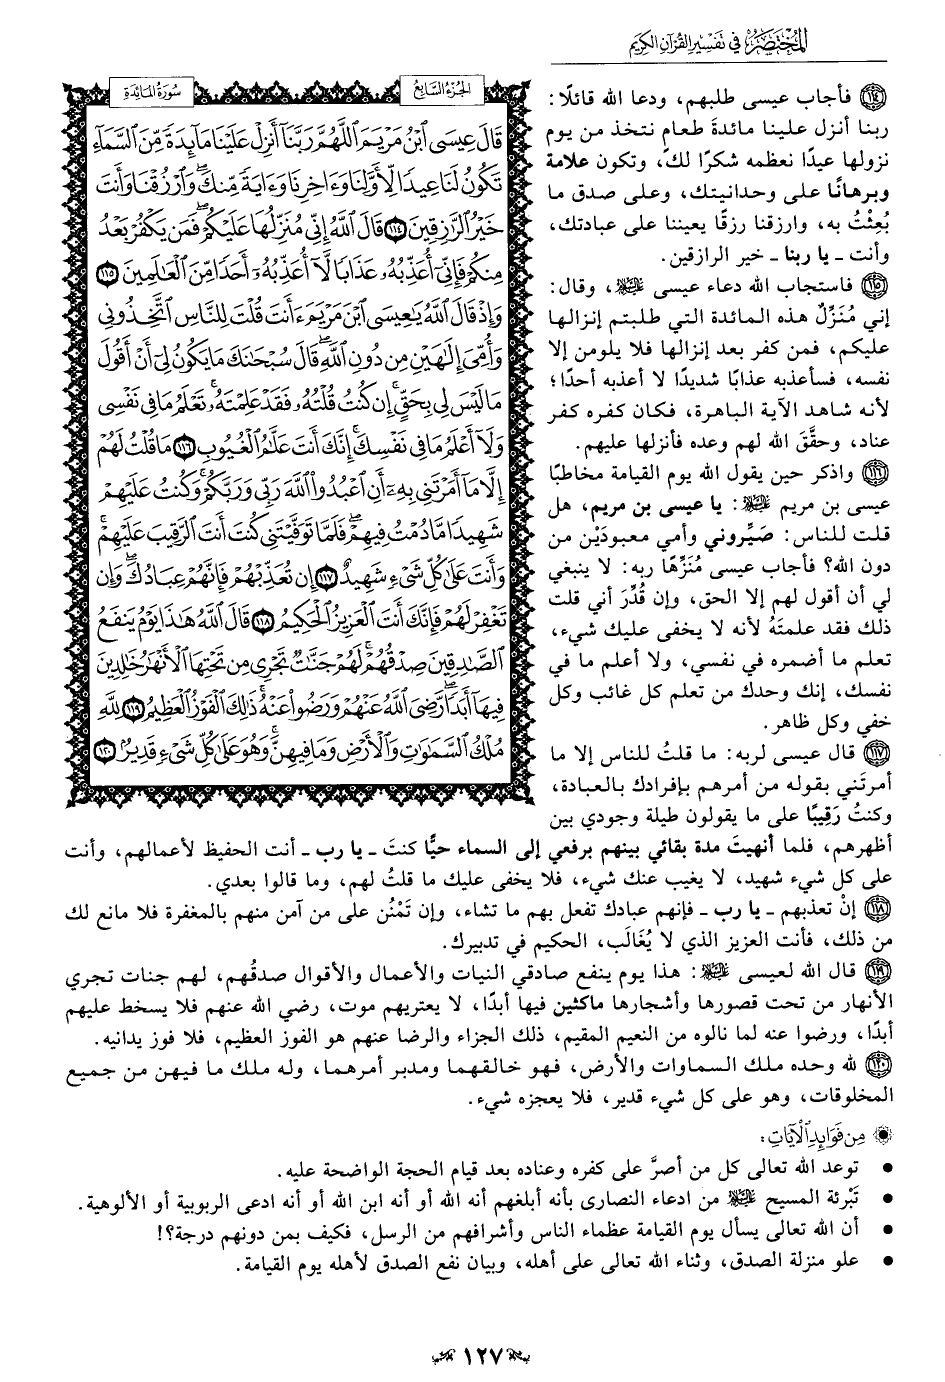 المختصر في تفسير القرآن الكريم
الجزء السابع
سورة المائدة
قَالَ عِيسَى ٱبْنُ مَرْيَمَ ٱللَّهُمَّ رَبَّنَآ أَنزِلْ عَلَيْنَا مَآئِدَةً مِّنَ ٱلسَّمَآءِ
تَكُونُ لَنَا عِيدًا لِّأَوَّلِنَا وَءَاخِرِنَا وَءَايَةً مِّنكَ وَٱرْزُقْنَا وَأَنتَ
خَيْرُ ٱلرَّٰزِقِينَ ١١٤ قَالَ ٱللَّهُ إِنِّى مُنَزِّلُهَا عَلَيْكُمْ فَمَن يَكْفُرْ بَعْدُ
مِنكُمْ فَإِنِّىٓ أُعَذِّبُهُۥ عَذَابًا لَّآ أُعَذِّبُهُۥٓ أَحَدًا مِّنَ ٱلْعَٰلَمِينَ ١١٥
وَإِذْ قَالَ ٱللَّهُ يَٰعِيسَى ٱبْنَ مَرْيَمَ ءَأَنتَ قُلْتَ لِلنَّاسِ ٱتَّخِذُونِى
وَأُمِّىَ إِلَٰهَيْنِ مِن دُونِ ٱللَّهِ قَالَ سُبْحَٰنَكَ مَا يَكُونُ لِىٓ أَنْ أَقُولَ
مَا لَيْسَ لِى بِحَقٍّ إِن كُنتُ قُلْتُهُۥ فَقَدْ عَلِمْتَهُۥ تَعْلَمُ مَا فِى نَفْسِى
وَلَآ أَعْلَمُ مَا فِى نَفْسِكَ إِنَّكَ أَنتَ عَلَّٰمُ ٱلْغُيُوبِ ١١٦ مَا قُلْتُ لَهُمْ
إِلَّا مَآ أَمَرْتَنِى بِهِۦٓ أَنِ ٱعْبُدُوا۟ ٱللَّهَ رَبِّى وَرَبَّكُمْ وَكُنتُ عَلَيْهِمْ
شَهِيدًا مَّا دُمْتُ فِيهِمْ فَلَمَّا تَوَفَّيْتَنِى كُنتَ أَنتَ ٱلرَّقِيبَ عَلَيْهِمْ
وَأَنتَ عَلَىٰ كُلِّ شَىْءٍ شَهِيدٌ ١١٧ إِن تُعَذِّبْهُمْ فَإِنَّهُمْ عِبَادُكَ وَإِن
تَغْفِرْ لَهُمْ فَإِنَّكَ أَنتَ ٱلْعَزِيزُ ٱلْحَكِيمُ ١١٨ قَالَ ٱللَّهُ هَٰذَا يَوْمُ يَنفَعُ
ٱلصَّٰدِقِينَ صِدْقُهُمْ لَهُمْ جَنَّٰتٌ تَجْرِى مِن تَحْتِهَا ٱلْأَنْهَٰرُ خَٰلِدِينَ
فِيهَآ أَبَدًا رَّضِىَ ٱللَّهُ عَنْهُمْ وَرَضُوا۟ عَنْهُ ذَٰلِكَ ٱلْفَوْزُ ٱلْعَظِيمُ ١١٩ لِلَّهِ
مُلْكُ ٱلسَّمَٰوَٰتِ وَٱلْأَرْضِ وَمَا فِيهِنَّ وَهُوَ عَلَىٰ كُلِّ شَىْءٍ قَدِيرٌۢ ١٢٠
١١٤ فأجاب عيسى طلبهم، ودعا الله قائلًا:
ربنا أنزل علينا مائدة طعام نتخذ من يوم
نزولها عيدًا نعظمه شكرًا لك، وتكون علامة
وبرهانًا على وحدانيتك، وعلى صدق ما
بُعِثْتُ به، وارزقنا رزقًا يعيننا على عبادتك،
وأنت ـ يا ربنا ـ خير الرازقين.
١١٥ فاستجاب الله دعاء عيسى عليه السلام، وقال:
إني مُنَزِّلٌ هذه المائدة التي طلبتم إنزالها
عليكم، فمن كفر بعد إنزالها فلا يلومن إلا
نفسه، فسأعذبه عذابًا شديدًا لا أعذبه أحدًا؛
لأنه شاهد الآية الباهرة، فكان كفره كفر
عناد، وحقَّقَ الله لهم وعده فأنزلها عليهم.
١١٦ واذكر حين يقول الله يوم القيامة مخاطبًا
عيسى بن مريم عليه السلام: يا عيسى بن مريم، هل
قلت للناس: صَيِّروني وأمي معبودَيْن من
دون الله؟ فأجاب عيسى مُنَزِّهًا ربه: لا ينبغي
لي أن أقول لهم إلا الحق، وإن قُدِّرَ أني قلت
ذلك فقد علمتَهُ لأنه لا يخفى عليك شيء،
تعلم ما أضمره في نفسي، ولا أعلم ما في
نفسك، إنك وحدك من تعلم كل غائب وكل
خفي وكل ظاهر.
١١٧ قال عيسى لربه: ما قلتُ للناس إلا ما
أمرتَني بقوله من أمرهم بإفرادك بالعبادة،
وكنتُ رَقِيبًا على ما يقولون طيلة وجودي بين
أظهرهم، فلما أنهيتَ مدة بقائي بينهم برفعي إلى السماء حيًّا كنتَ ـ يا رب ـ أنت الحفيظ لأعمالهم، وأنت
على كل شيء شهيد، لا يغيب عنك شيء، فلا يخفى عليك ما قلتُ لهم، وما قالوا بعدي.
١١٨ إنْ تعذبهم ـ يا رب ـ فإنهم عبادك تفعل بهم ما تشاء، وإن تَمْنُن على من آمن منهم بالمغفرة فلا مانع لك
من ذلك، فأنت العزيز الذي لا يُغَالَب، الحكيم في تدبيرك.
١١٩ قال الله لعيسى عليه السلام: هذا يوم ينفع صادقي النيات والأعمال والأقوال صدقُهم، لهم جنات تجري
الأنهار من تحت قصورها وأشجارها ماكثين فيها أبدًا، لا يعتريهم موت، رضي الله عنهم فلا يسخط عليهم
أبدًا، ورضوا عنه لما نالوه من النعيم المقيم، ذلك الجزاء والرضا عنهم هو الفوز العظيم، فلا فوز يدانيه.
١٢٠ لله وحده ملك السماوات والأرض، فهو خالقهما ومدبر أمرهما، وله ملك ما فيهن من جميع
المخلوقات، وهو على كل شيء قدير، فلا يعجزه شيء.
من فوائد الآيات:
• توعد الله تعالى كل من أصرَّ على كفره وعناده بعد قيام الحجة الواضحة عليه.
• تَبْرئة المسيح عليه السلام من ادعاء النصارى بأنه أبلغهم أنه الله أو أنه ابن الله أو أنه ادعى الربوبية أو الألوهية.
• أن الله تعالى يسأل يوم القيامة عظماء الناس وأشرافهم من الرسل، فكيف بمن دونهم درجة؟!
• علو منزلة الصدق، وثناء الله تعالى على أهله، وبيان نفع الصدق لأهله يوم القيامة.
١٢٧